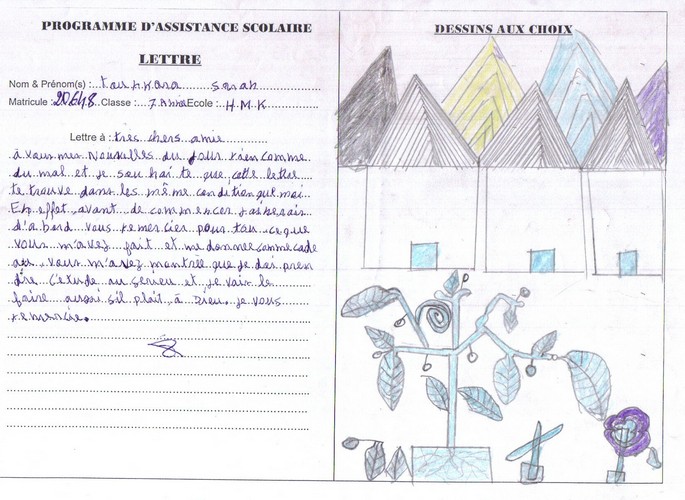 PROGRAMME D'ASSISTANCE SCOLAIRE
LETTRE
Nom & Prénom(s) : Tounkara Sarah
Matricule : 20648 Classe : 7. Anné Ecole : H.M.K
Lettre à : tres chers amie
à vous mes Nouvelles du jour rien comme
du mal et je souhaite que cette lettre
te trouve dans les même condition que moi
En effet avant de commencer j'aimerais
d'abord vous remercier pour tou ce que
vous m'avez fait et me donnée comme cade
au vous m'avez montrée que je dois pren
dre l'étude au serieu et je vais le
faire aussi s'il plait à Dieu je vous
remercie.
DESSINS AUX CHOIX